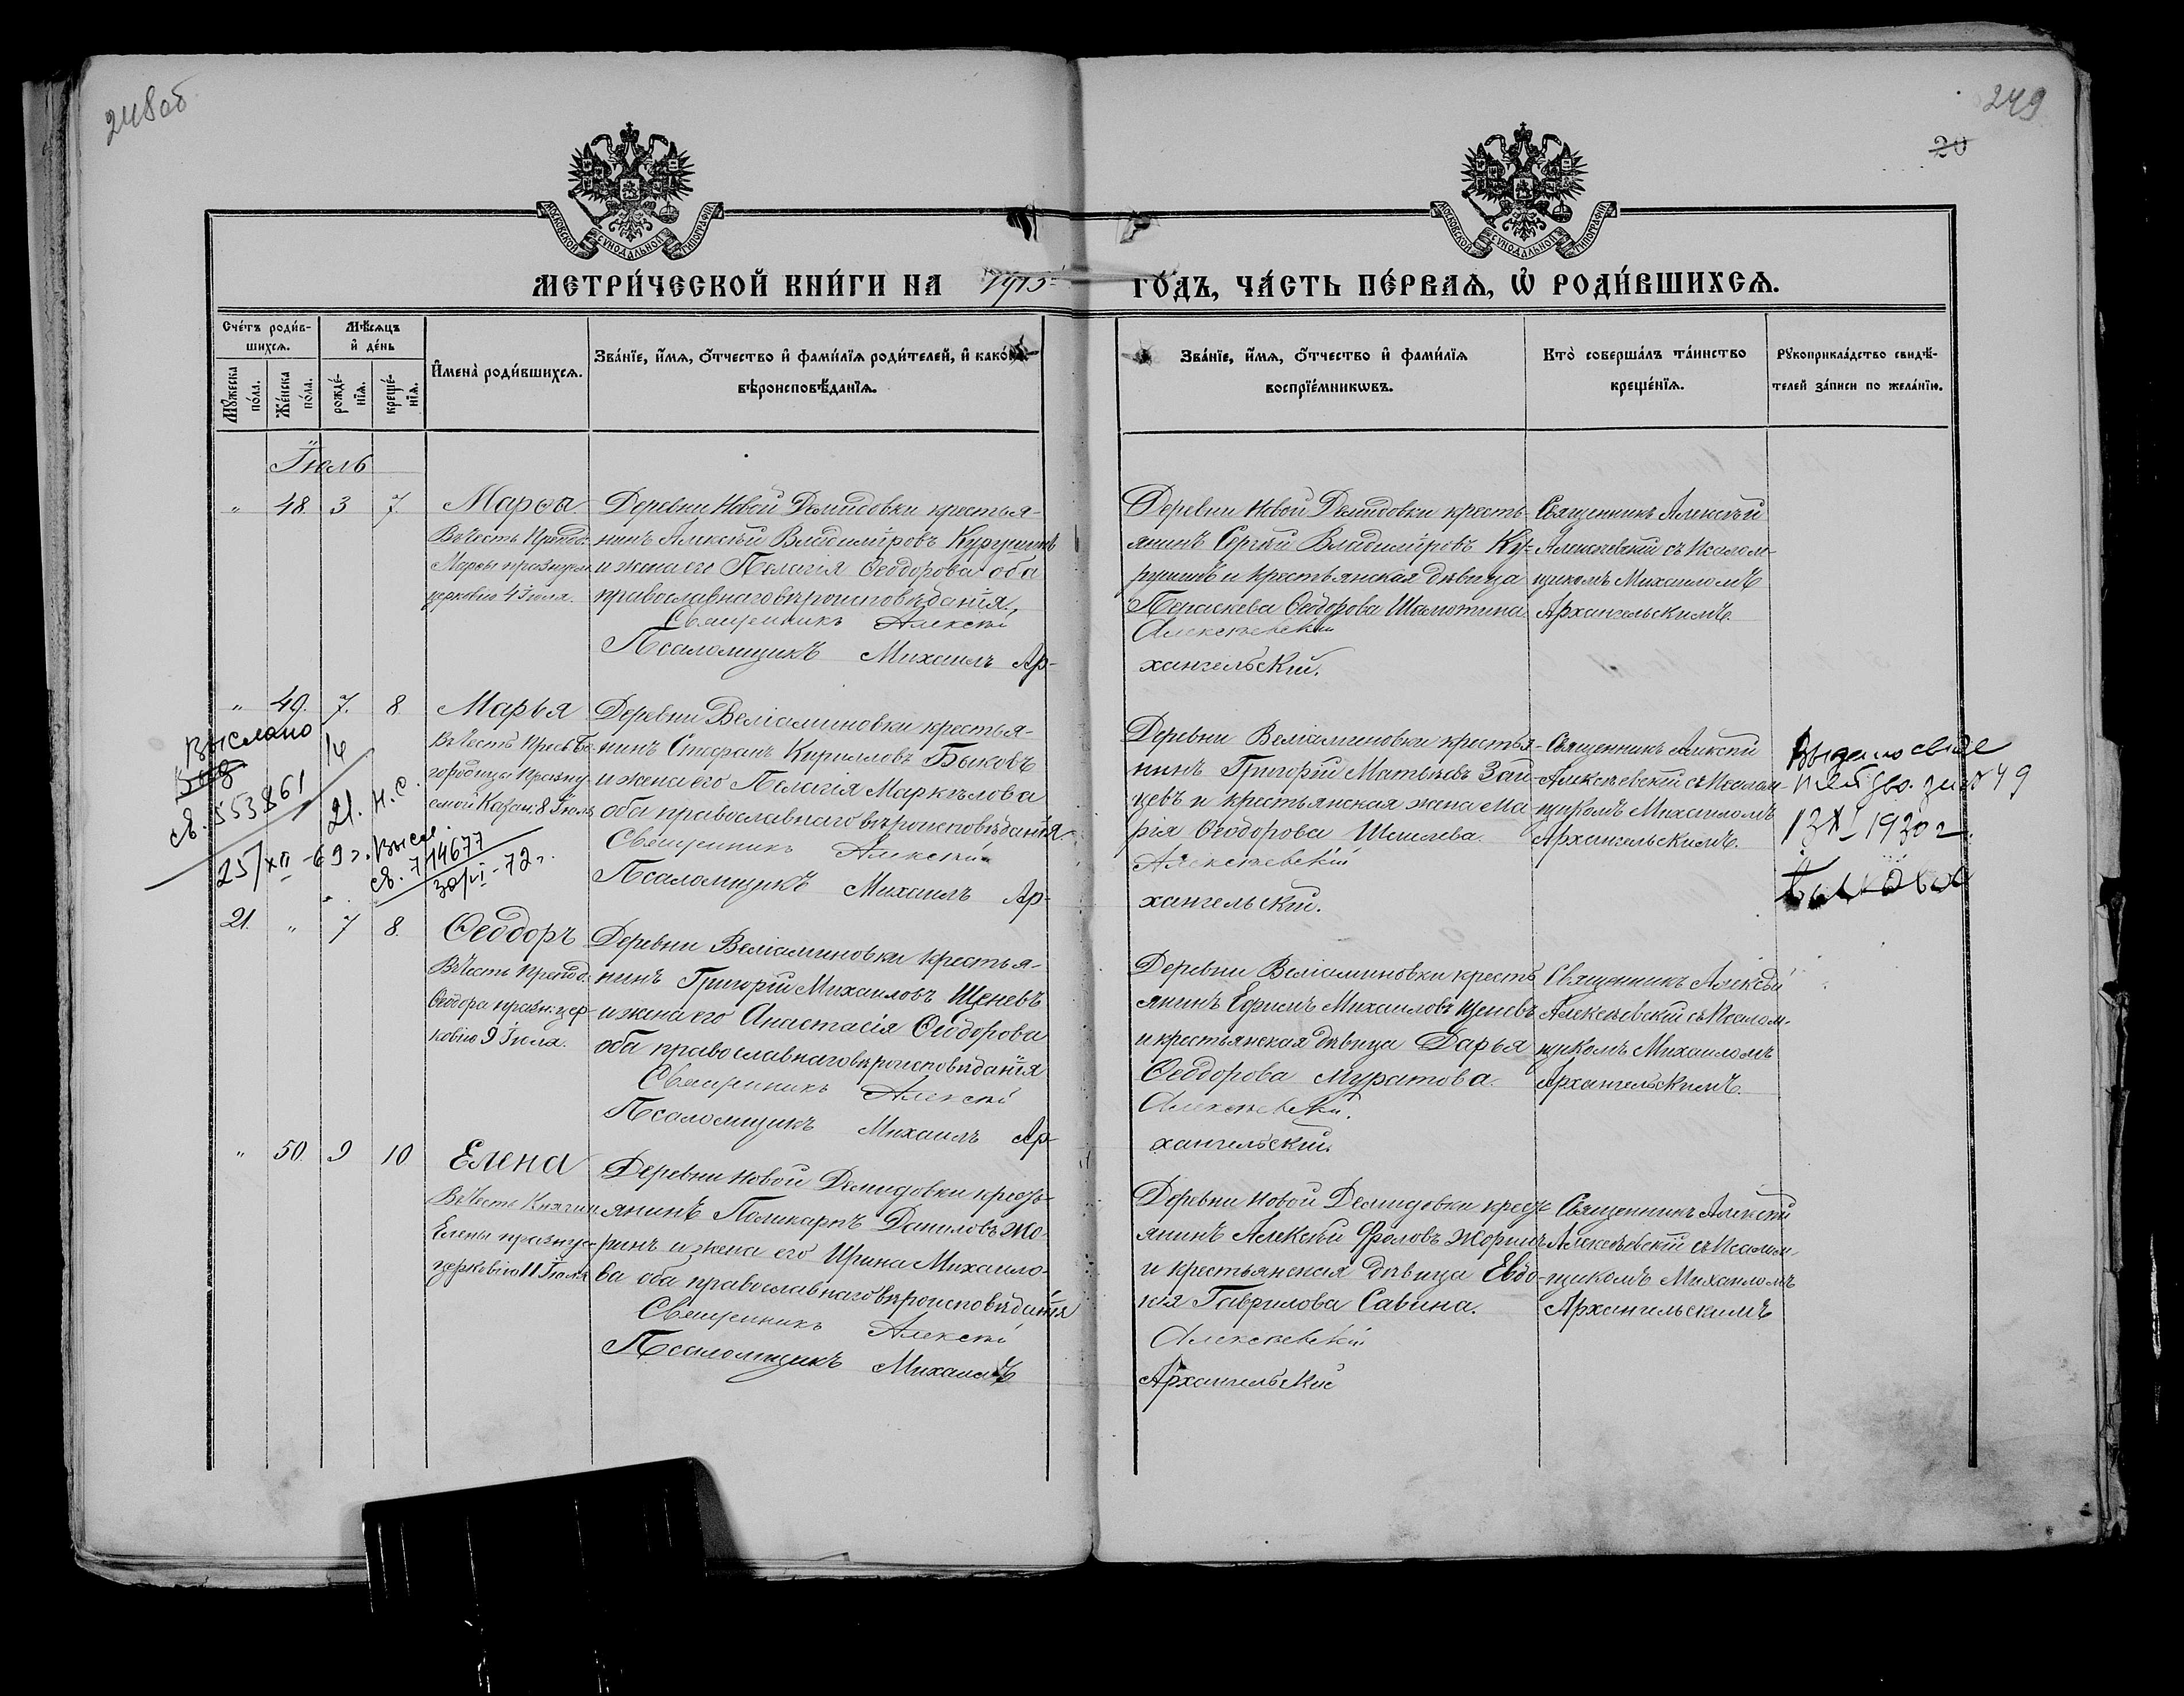 248об
249
20
МОСКОВСКОЙ СѴНОДАЛЬНОЙ ТИПОГРАФІИ
МОСКОВСКОЙ СѴНОДАЛЬНОЙ ТИПОГРАФІИ
МЕТРИ́ЧЕСКОЙ КНИ́ГИ НА 1915 ГО́ДЪ, ЧА́СТЬ ПЕ́РВАѦ, Ѡ҆ РОДИ́ВШИХСѦ.
Сче́тъ роди́в-
шихсѧ.
Мѣ́сѧцъ
и҆ де́нь
Мꙋ́жеска
по́ла.
Же́нска
по́ла.
рожде́-
нїѧ.
креще́-
нїѧ.
И҆мена̀ роди́вшихсѧ.
Зва́нїе, и҆́мѧ, ѻ҆́тчество и҆ фами́лїѧ роди́телей, и҆ како́гѡ
вѣроисповѣ́данїѧ.
Зва́нїе, и҆́мѧ, ѻ҆́тчество и҆ фами́лїѧ
воспрїе́мникѡвъ.
Кто̀ соверша́лъ та́инство
креще́нїѧ.
Рꙋкоприкла́дство свидѣ́-
телей за́писи по жела́нїю.
Іюль
" 48. 3 7.
Марѳа
Въ честь Препод.
Марѳы празднуем.
церковію 4 Іюля.
Деревни Новой Демидовки крестья-
нинъ Алексѣй Владиміровъ Курушинъ
и жена его Пелагія Ѳеодорова оба
православнаго вѣроисповѣданія.
Священникъ Алексѣй
Псаломщикъ Михаилъ Ар-
Деревни Новой Демидовки кресть-
янинъ Сергѣй Владиміровъ Ку-
рушинъ и крестьянская дѣвица
Параскева Ѳеодорова Шамотина.
Алексѣевскій
хангельскій.
Священникъ Алексѣй
Алексѣевскій съ Псалом-
щикомъ Михаиломъ
Архангельскимъ.
" 49. 7. 8
Марья
Въ честь Пресв. Бо-
городицы Праздну-
емой Казан. 8 Іюля
Деревни Веліаминовки крестья-
нинъ Стефанъ Кирилловъ Быковъ
и жена его Пелагія Маркелова
оба православнаго вѣроисповѣданія.
Священникъ Алексѣй
Псаломщикъ Михаилъ Ар-
Деревни Веліаминовки крестья-
нинъ Григорій Матвѣевъ Зай-
цевъ и крестьянская жена Ма-
рія Ѳеодорова Шмелева.
Алексѣевскій
хангельскій.
Священникъ Алексѣй
Алексѣевскій съ Псалом-
щикомъ Михаиломъ
Архангельскимъ.
Выслано
св. 553861
21. н. с.
25/XII-69г. Высл.
св. 7114677
72г.
Выдано свиде
за № 49
13 XI 1930 г.
Быкова
21. " 7 8.
Ѳеодоръ
Въ честь Препод.
Ѳеодора празн. цер-
ковію 9 Іюля.
Деревни Веліаминовки крестья-
нинъ Григорій Михаиловъ Щеневъ
и жена его Анастасія Ѳеодорова
оба православнаго вѣроисповѣданія
Священникъ Алексѣй
Псаломщикъ Михаилъ Ар-
Деревни Веліаминовки кресть
янинъ Ефимъ Михаиловъ Щеневъ
и крестьянская дѣвица Дарья
Ѳеодорова Муратова.
Алексѣевскій.
хангельскій.
Священникъ Алексѣй
Алексѣевскій съ Псалом-
щикомъ Михаиломъ
Архангельскимъ.
" 50. 9 10
Елена
Въ честь Княгин.
Елены празнуе.
церковію 11 Іюля
Деревни Новой Демидовки кресть-
янинъ Поликарпъ Даниловъ Жо-
ринъ и жена его Ирина Михаило-
ва оба православнаго вѣроисповѣданія
Священникъ Алексѣй
Псаломщикъ Михаилъ
Деревни Новой Демидовки кресть
янинъ Алексѣй Фроловъ Жоринъ
и крестьянская дѣвица Евдо-
кія Гаврилова Савина.
Алексѣевскій
Архангельскій
Священникъ Алексѣй
Алексѣевскій съ Псалом-
щикомъ Михаиломъ
Архангельскимъ